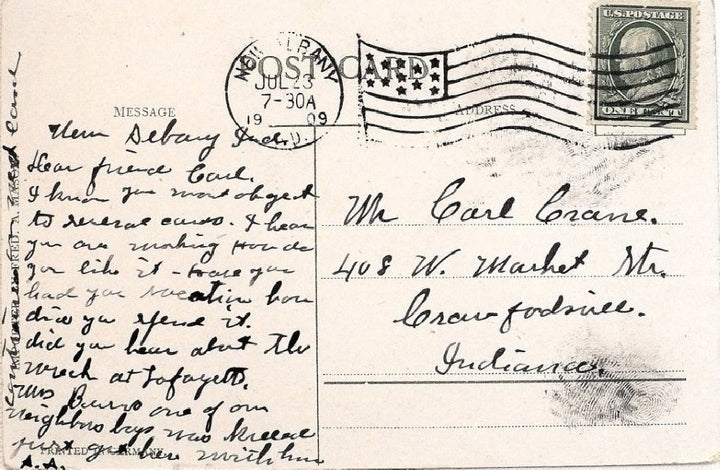 POST CARD
U.S. POSTAGE
ONE CENT
NEW ALBANY
JUL 23
7-30A
1909
IND.
MESSAGE
ADDRESS
New Debany Ind.
Dear friend Carl.
I know you wont object
to several cards. I hear
you are working How do
you like it - Have you
had you vacation how
did you spend it.
did you hear about the
wreck at Lafayett.
Mrs Burns one of our
neighbors boys was killed
just
A.A.
card
Mr Carl Crane.
408 W. Market Str.
Crawfodsville.
Indiana.
PRINTED IN GERMANY